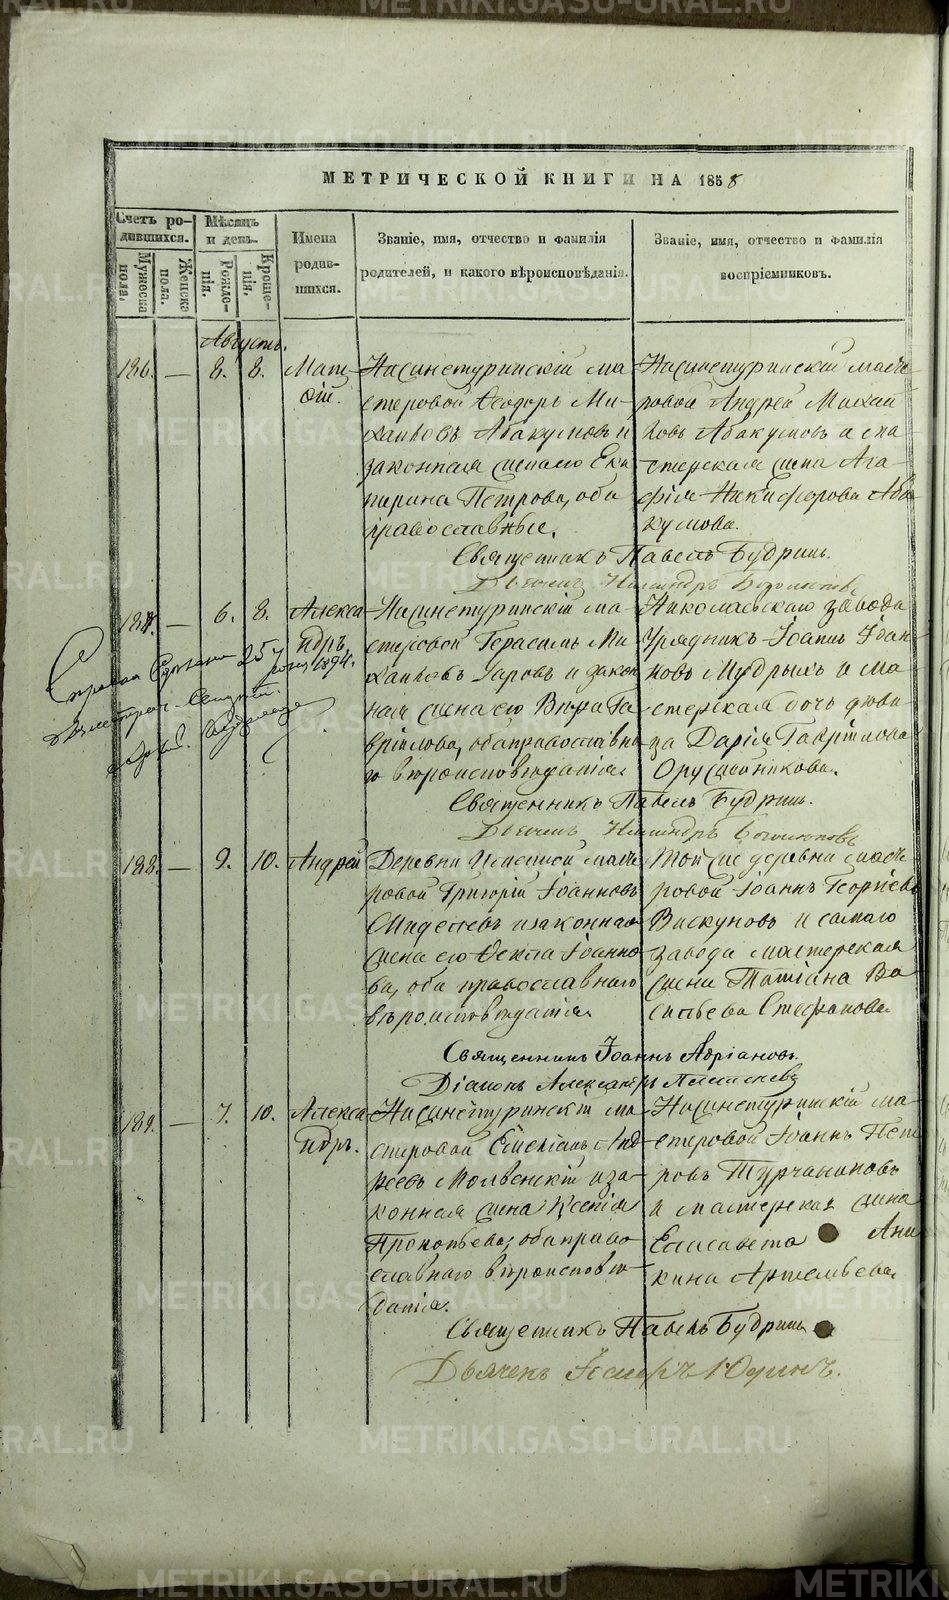 МЕТРИЧЕСКОЙ КНИГИ НА 1858
Счетъ ро-
дившихся.
Мужеска
пола.
Женска
пола.
Мѣсяцъ
и день.
Рожде-
нія.
Креще-
нія.
Имена
родив-
шихся.
Званіе, имя, отчество и фамилія
родителей, и какого вѣроисповѣданія.
Званіе, имя, отчество и фамилія
воспріемниковъ.
Августъ.
186. — 8. 8.
Мат-
ѳій.
Нижнетуринскій ма
стеровой Ѳеодоръ Ми-
хаиловъ Абакумовъ и
законная жена его Ека
терина Петрова, оба
православные.
Нижнетуринскій масте
ровой Андрей Михаи
ловъ Абакумовъ и ма
стерская жена Ага
фія Никифорова Аба
кумова.
Священникъ Павелъ Будринъ.
187. — 6. 8.
Алекса
ндръ.
Нижнетуринскій ма-
стеровой Герасимъ Ми
хаиловъ и закон
ная жена его Вѣра Га
вріилова, оба православна
го вѣроисповѣданія.
Николаевскаго завода
Урядникъ Іоаннъ Іоан
новъ Мудрыхъ и ма
стерская дочь дѣви
ца Дарія Гавріилова
Оружейникова.
1894.
Священникъ Павелъ Будринъ.
188. — 9. 10.
Андрей
Деревни Именной масте
ровой Григорій Іоанновъ
и законная
жена его Ѳекла Іоанно
ва, оба православнаго
вѣроисповѣданія.
Той же деревни масте
ровой Іоаннъ Георгіевъ
Вискуновъ и самаго
завода мастерская
жена Татіана Ва
сильева Стефанова.
Священникъ Іоаннъ Адріановъ.
Діаконъ Александръ
189. — 7. 10.
Алекса
ндръ.
Нижнетуринскій ма
стеровой Емеліанъ Анд
реевъ Молвенскій и за-
конная жена Ксенія
Прокопьева, оба право
славнаго вѣроисповѣ
данія.
Нижнетуринскій ма-
стеровой Іоаннъ Пет
ровъ Турчаниновъ
и мастерская жена
Елисавета Ани
кина Артемьева.
Священникъ Павелъ Будринъ
Дьячекъ Юдинъ.
METRIKI.GASO-URAL.RU